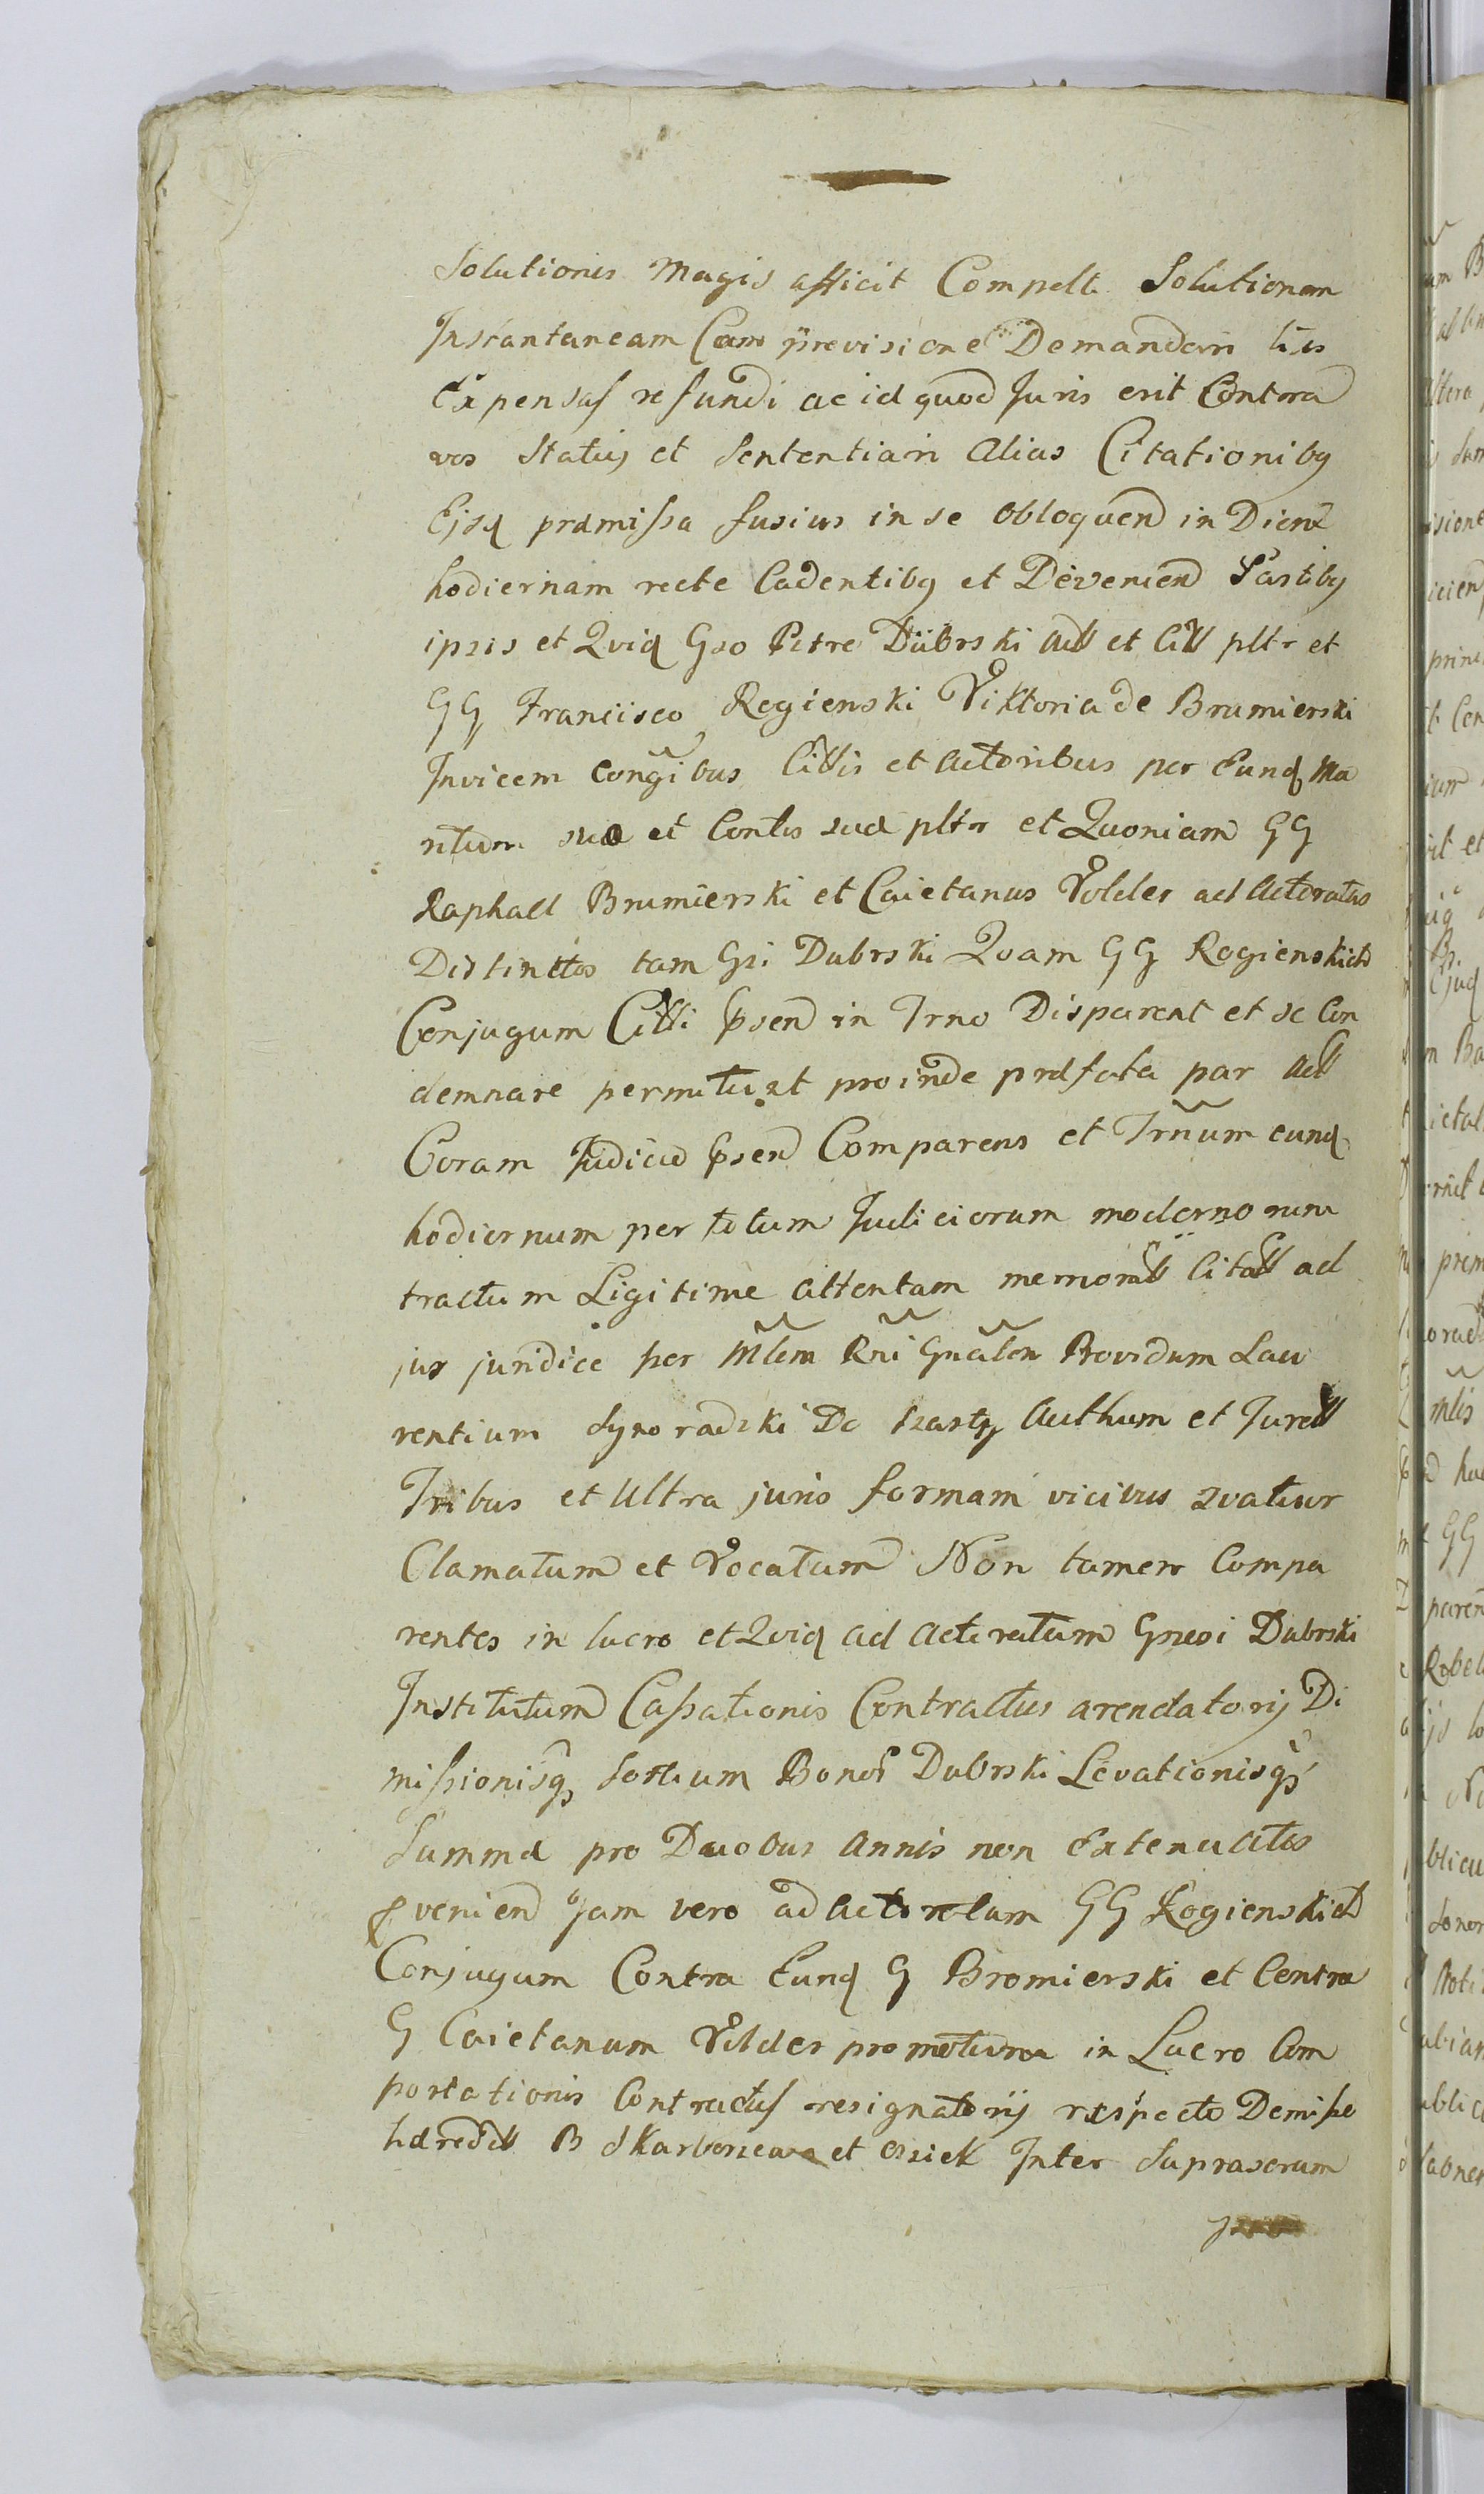 Solutionis Magis afficit Compelli Solutionem
Instantaneam Cum previsione Demandari litis
Expensas refundi ac id quod Juris erit Contra
vos Statuj et Sententiari alias Citationiby
Ejsq præmissa fusius in se obloquend in Diem
hodiernam recte Cadentiby et Deveniend Partiby
ipsis et Qviq Gso Petro Dubrski et pltr et
GG Francisco Rogienski Viktoria de Brumierski
Invicem Congibus et Actoribus per Eunq Ma
ritum suo et Contis sua pltr et Quoniam GG
Raphael Brumierski et Caietanus Volder ad Actoratus
Distinctos tam Gsi Dubrski Qvam GG Rogienskich
Conjugum psend in Trno Disparent et se Con
demnare permitunt proinde præfata par
Coram Judicio psend Comparens et Trnum eunq
hodiernum per totum Judiciorum modernorum
tractum Ligitime attentam ad
jus juridice per Mlem Rni Gnalem Providum Lau
rentium Synoradzki De Authum et
Tribus et Ultra juris formam vicibus
Clamatum et Vocatum Non tamen Compa
rentes in lucro et Qviq ad Actoratum Dubrski
Institutum Cassationis Contractus arendatorij Di
missionisq Sortium Bonor Dubrski Levationisq
Summa pro Duobus Annis non Extenuatis
pveniend Jam vero ad Actoratum GG Rogienskich
Conjugum Contra Eunq G Bromierski et Contra
G Caietanum Volder promotum in Lucro Com
portationis Contractus resignatorij respectu Demisse
B Skarboszewo et Osiek Inter